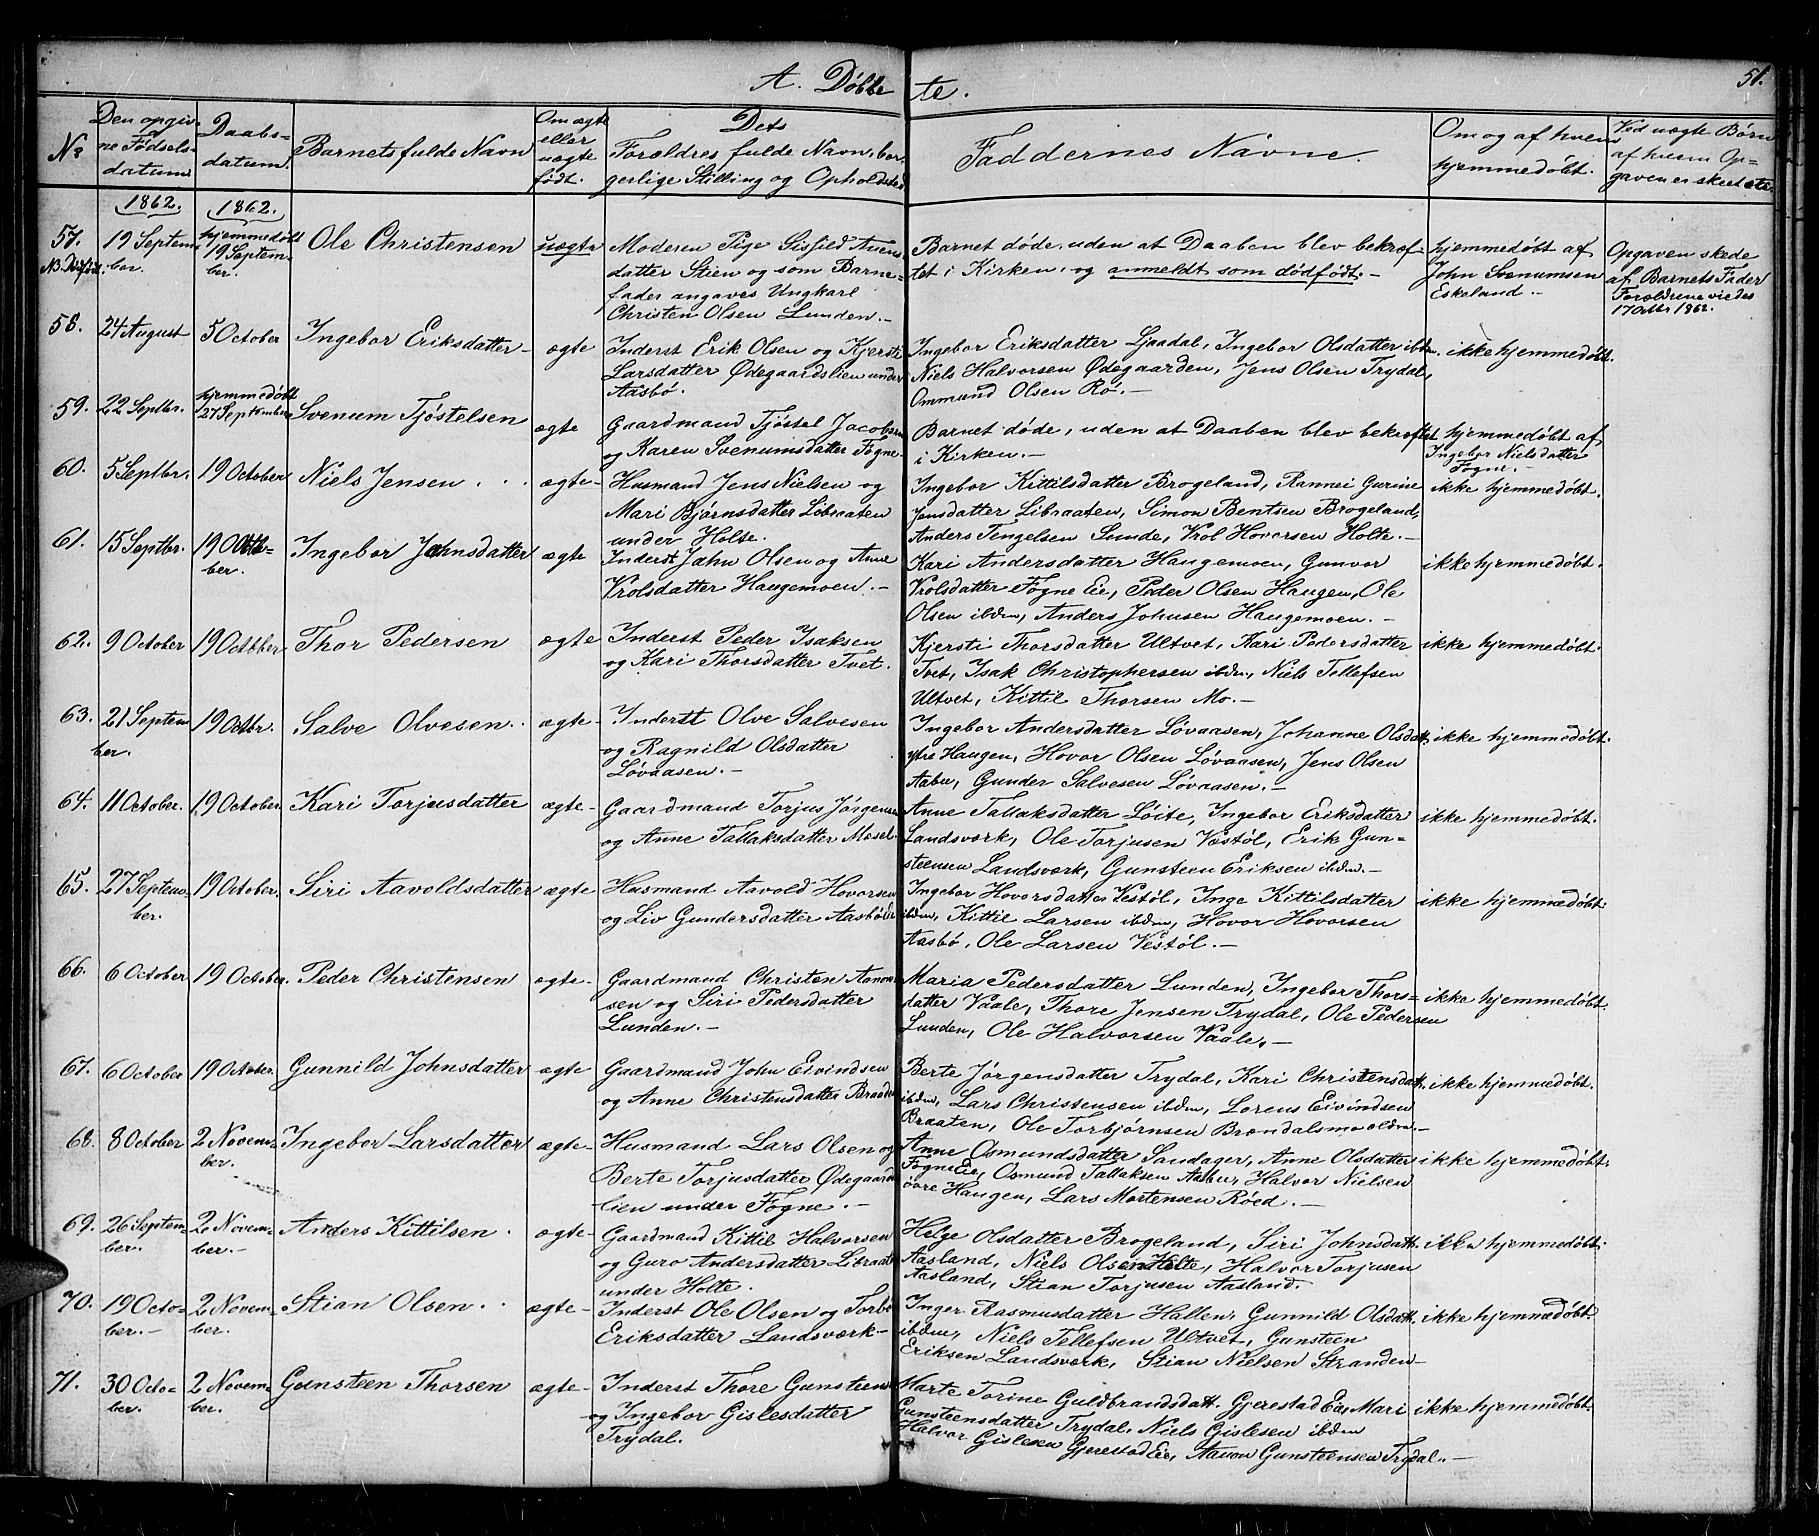 A. Døbte.
51.
No
Den opgivne Fødselsdatum
Daabsdatum.
Barnets fulde Navn
Om ægte eller uægte født.
Dets Forældres fulde Navn, borgerlige Stilling og Opholdsted
Faddernes Navne.
Om og af hvem hjemmedøbt.
Ved uægte Børn af hvem Opgaven er skeet etc.
1862.
1862.
57.
19 September.
hjemmedøbt 19 September.
Ole Christensen
uægte
Moderen Pige
datter Stien og som Barnefader angaves Ungkarl
Christen Olsen Lunden.-
Barnet døde, uden at Daaben blev bekræftet i Kirken, og anmeldt som dødfødt.-
hjemmedøbt af
John Svenumsen
Eskeland.-
Opgaven skede
af Barnets Fader
Forældrene viedes
17 Octbr 1862.
58.
24 August
5 October
Ingebor Eriksdatter-
ægte
Inderst Erik Olsen og Kjersti
Larsdatter Ødegaardslien under
Aasbø.
Ingebor Eriksdatter Ljaadal, Ingebor Olsdatter ibdm.
Niels Halvorsen Ødegaarden, Jens Olsen Trydal,
Ommund Olsen Rø.-
ikke hjemmedøbt.
59.
22 Septbr.
hjemmedøbt
27 September
Svenum Tjøstelsen
ægte
Gaardmand Tjøstel Jacobsen
og Karen Svenumsdatter Fogne.
Barnet døde, uden at Daaben blev bekræftet
i Kirken.-
hjemmedøbt af
Ingebor Nielsdatter
Fogne.-
60.
5 Septbr.
19 October
Niels Jensen
ægte-
Husmand Jens Nielsen og
Mari Bjørnsdatter Libraaten
under Holte.
Ingebor Kittilsdatter Brogeland, Rannei Gurine
Jensdatter Libraaten, Simon Bentsen Brogeland,
Anders Tengelsen Sunde, Vrol Hovorsen Holte.-
ikke hjemmedøbt.
61.
15 Septbr.
19 October.
Ingebor Johnsdatter
ægte
Inderst Jahn Olsen og Anne
Vrolsdatter Haugemoen.-
Kari Andersdatter Haugemoen, Gunvor
Vrolsdatter Fogne Eie, Peder Olsen Haugen, Ole
Olsen ibdm, Anders Johnsen Haugemoen.-
ikke hjemmedøbt.
62.
9 October
19 October
Thor Pedersen
ægte
Inderst Peder Isaksen
og Kari Thorsdatter Tvet.
Kjersti Thorsdatter Ultvet, Kari Pedersdatter
Tvet, Isak Christophersen ibdm, Niels Tellefsen
Ultvet, Kittil Thorsen Mo.-
ikke hjemmedøbt.
63.
21 September.
19 Octbr.
Salve Olvesen.
ægte-
Inderst Olve Salvesen
og Ragnild Olsdatter
Løvaasen.-
Ingebor Andersdatter Løvaasen, Johanne Olsdatt.
ytre Haugen, Hovor Olsen Løvaasen, Jens Olsen
Aabu, Gunder Salvesen Løvaasen.-
ikke hjemmedøbt.
64.
11 October.
19 October
Kari Torjusdatter
ægte-
Gaardmand Torjus Jørgensen
og Anne Tallaksdatter Mosel.
Anne Tallaksdatter Løite, Ingebor Eriksdatter
Landsværk, Ole Torjusen Vestøl, Erik Gunsteensen Landsværk, Gunsteen Eriksen ibdm.-
ikke hjemmedøbt.
65.
27 September.
19 October.
Siri Aavoldsdatter
ægte
Husmand Aavold Hovorsen
og Liv Gundersdatter Aasbø Eie
Ingebor Hovorsdatter Vestøl, Inge Kittilsdatter
ibdm, Kittil Larsen ibdm, Hovor Hovorsen
Aasbø, Ole Larsen Vestøl.-
ikke hjemmedøbt.
66.
6 October
19 October.
Peder Christensen
ægte-
Gaardmand Christen Aanonsen og Siri Pedersdatter
Lunden.-
Maria Pedersdatter Lunden, Ingebor Thorsdatter Vaale, Thore Jensen Trydal, Ole Pedersen
Lunden, Ole Halvorsen Vaale.-
ikke hjemmedøbt.
67.
6 October
19 October.
Gunnild Johnsdatter
ægte
Gaardmand John Eivindsen
og Anne Christensdatter Braaten
Berte Jørgensdatter Trydal, Kari Christensdatt.
ibdm, Lars Christensen ibdm, Lorens Eivindsen
Braaten, Ole Torbjørnsen Brøndalsmo
ikke hjemmedøbt.
68.
8 October
2 November.
Ingebor Larsdatter
ægte-
Husmand Lars Olsen og
Berte Torjusdatter Ødegaardslien under Fogne.-
Anne Osmundsdatter Sandager, Anne Olsdatter
Fogne Eie, Osmund Tallaksen Aabu, Halvor Nielsen
øvre Haugen, Lars Mortensen Røed.-
ikke hjemmedøbt.
69.
26 September.
2 November.-
Anders Kittilsen
ægte-
Gaardmand Kittil Halvorsen
og Guro Andersdatter Libraaten
under Holte.
Helge Olsdatter Brogeland, Siri Johnsdatt.
Aasland, Niels Olsen Holte, Halvor Torjusen
Aasland, Stian Torjusen Aasland.
ikke hjemmedøbt.
70.
19 October.-
2 November.
Stian Olsen.
ægte-
Inderst Ole Olsen og Torbor
Eriksdatter Landsværk-
Inger Rasmusdatter Hallen, Gunnild Olsdatt.
ibdm, Niels Tellefsen Ultvet, Gunsteen
Eriksen Landsværk, Stian Nielsen Stranden-
ikke hjemmedøbt.
71.
30 October.
2 November.
Gunsteen Thorsen
ægte-
Inderst Thore Gunsteensen
og Ingebor Gislesdatter
Trydal.
Marte Torine Guldbrandsdatt. Gjerestad Eie, Mari
Gunsteensdatter Trydal, Niels Gislesen ibdm
Halvor Gislesen Gjerestad Eie, Aanon Gunsteensen Trydal.-
ikke hjemmedøbt.